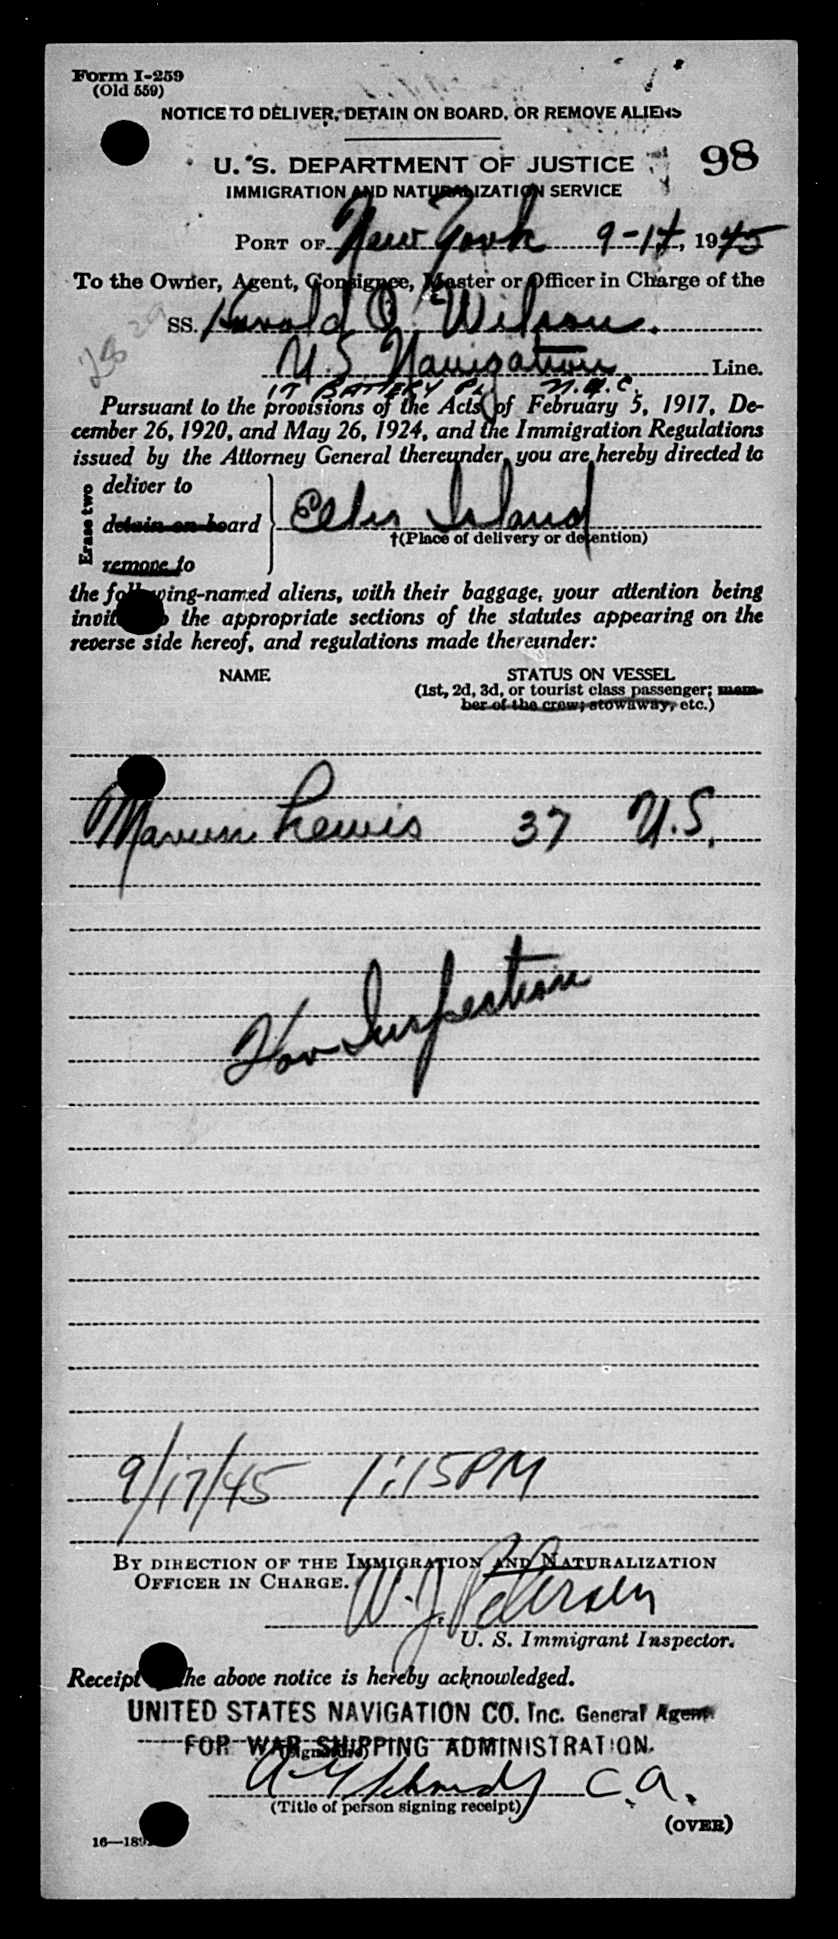 Form I-259
(Old 559)
NOTICE TO DELIVER, DETAIN ON BOARD, OR REMOVE ALIENS
U. S. DEPARTMENT OF JUSTICE 98
IMMIGRATION AND NATURALIZATION SERVICE
PORT OF New York 9-17, 1945
To the Owner, Agent, Consignee, Master or Officer in Charge of the
SS. Harold O. Wilson.
U.S Navigation Line.
17 BATTERY PL N.Y.C.
Pursuant to the provisions of the Acts of February 5, 1917, De-
cember 26, 1920, and May 26, 1924, and the Immigration Regulations
issued by the Attorney General thereunder, you are hereby directed to
Erase two
deliver to
detain on board Ellis Island
†(Place of delivery or detention)
remove to
the following-named aliens, with their baggage, your attention being
invited to the appropriate sections of the statutes appearing on the
reverse side hereof, and regulations made thereunder:
NAME STATUS ON VESSEL
(1st, 2d, 3d, or tourist class passenger; mem-
ber of the crew; stowaway, etc.)
Marvin Lewis 37 U.S.
For Inspection
9/17/45 1:15PM
BY DIRECTION OF THE IMMIGRATION AND NATURALIZATION
OFFICER IN CHARGE.
W. J. Petersen
U. S. Immigrant Inspector.
Receipt of the above notice is hereby acknowledged.
UNITED STATES NAVIGATION CO. Inc. General Agent
FOR WAR SHIPPING ADMINISTRATION.
(Signature)
C.A.
(Title of person signing receipt)
(OVER)